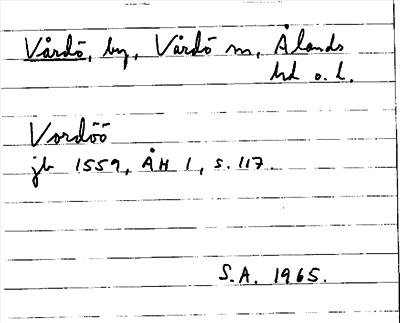 Vårdö, by, Vårdö sn, Ålands
hd o. l.
Vordöö
jb 1559, ÅH 1, s. 117
S.A. 1965.